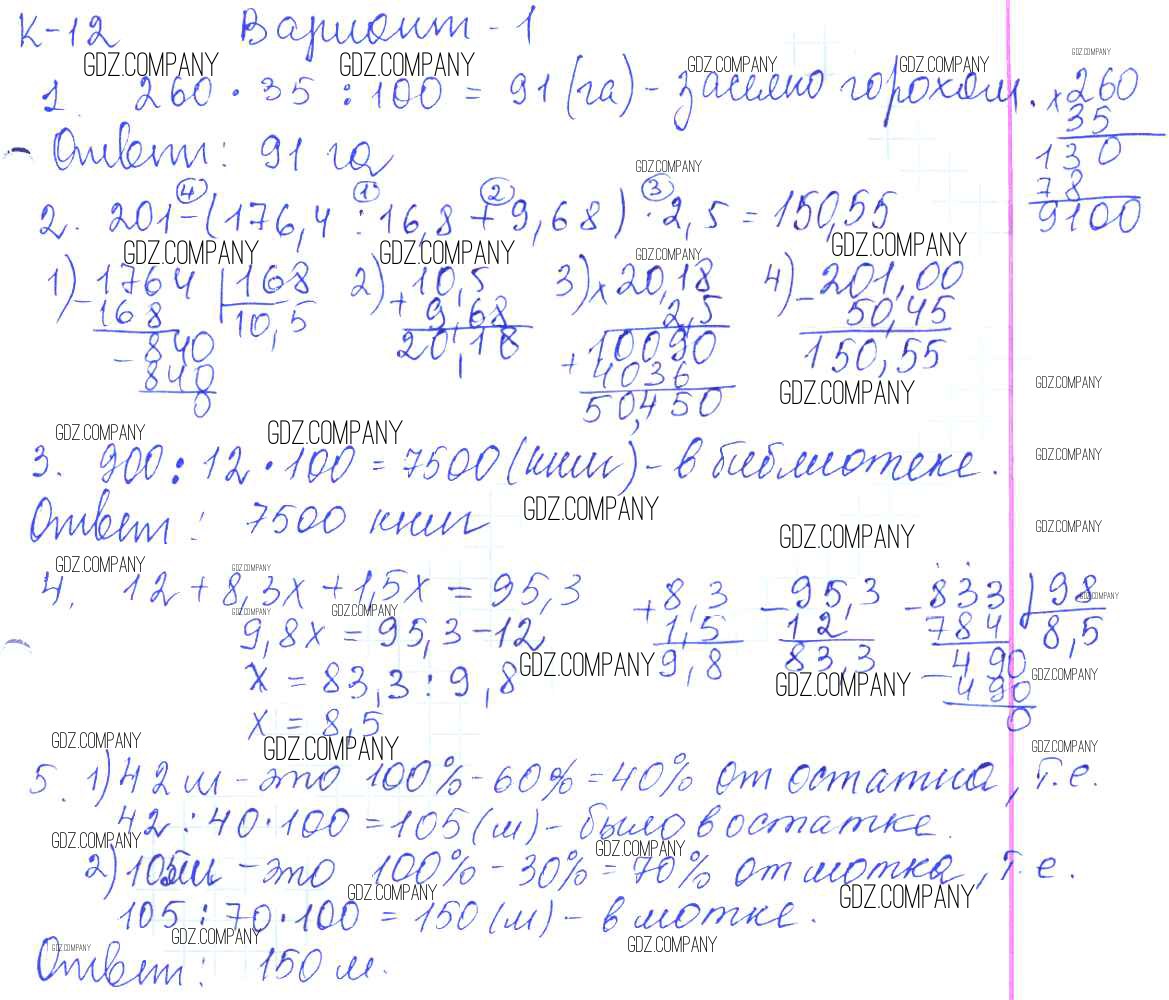 К-12 Вариант - 1
GDZ.COMPANY GDZ.COMPANY GDZ.COMPANY GDZ.COMPANY GDZ.COMPANY
1. 260 · 35 : 100 = 91 (га) - засеяно горохом.
× 260
35
130
78
9100
Ответ: 91 га
GDZ.COMPANY
④ ① ② ③
2. 201 - (176,4 : 16,8 + 9,68) · 2,5 = 150,55
GDZ.COMPANY GDZ.COMPANY GDZ.COMPANY GDZ.COMPANY
1) - 1764 | 168
168 10,5
- 840
840
0
2) + 10,5
9,68
20,18
3) × 20,18
2,5
+ 10090
4036
50,450
4) - 201,00
50,45
150,55
GDZ.COMPANY GDZ.COMPANY
GDZ.COMPANY GDZ.COMPANY
3. 900 : 12 · 100 = 7500 (книг) - в библиотеке.
GDZ.COMPANY
Ответ: 7500 книг
GDZ.COMPANY GDZ.COMPANY GDZ.COMPANY
GDZ.COMPANY GDZ.COMPANY
4. 12 + 8,3x + 1,5x = 95,3
GDZ.COMPANY GDZ.COMPANY GDZ.COMPANY
9,8x = 95,3 - 12
x = 83,3 : 9,8
x = 8,5
+ 8,3
1,5
9,8
- 95,3
12
83,3
- 833 | 98
784 8,5
- 490
490
0
GDZ.COMPANY GDZ.COMPANY GDZ.COMPANY
GDZ.COMPANY GDZ.COMPANY GDZ.COMPANY
5. 1) 42 м - это 100% - 60% = 40% от остатка, т.е.
42 : 40 · 100 = 105 (м) - было в остатке.
GDZ.COMPANY GDZ.COMPANY
2) 105 м - это 100% - 30% = 70% от мотка, т.е.
GDZ.COMPANY GDZ.COMPANY
105 : 70 · 100 = 150 (м) - в мотке.
GDZ.COMPANY GDZ.COMPANY GDZ.COMPANY
Ответ: 150 м.